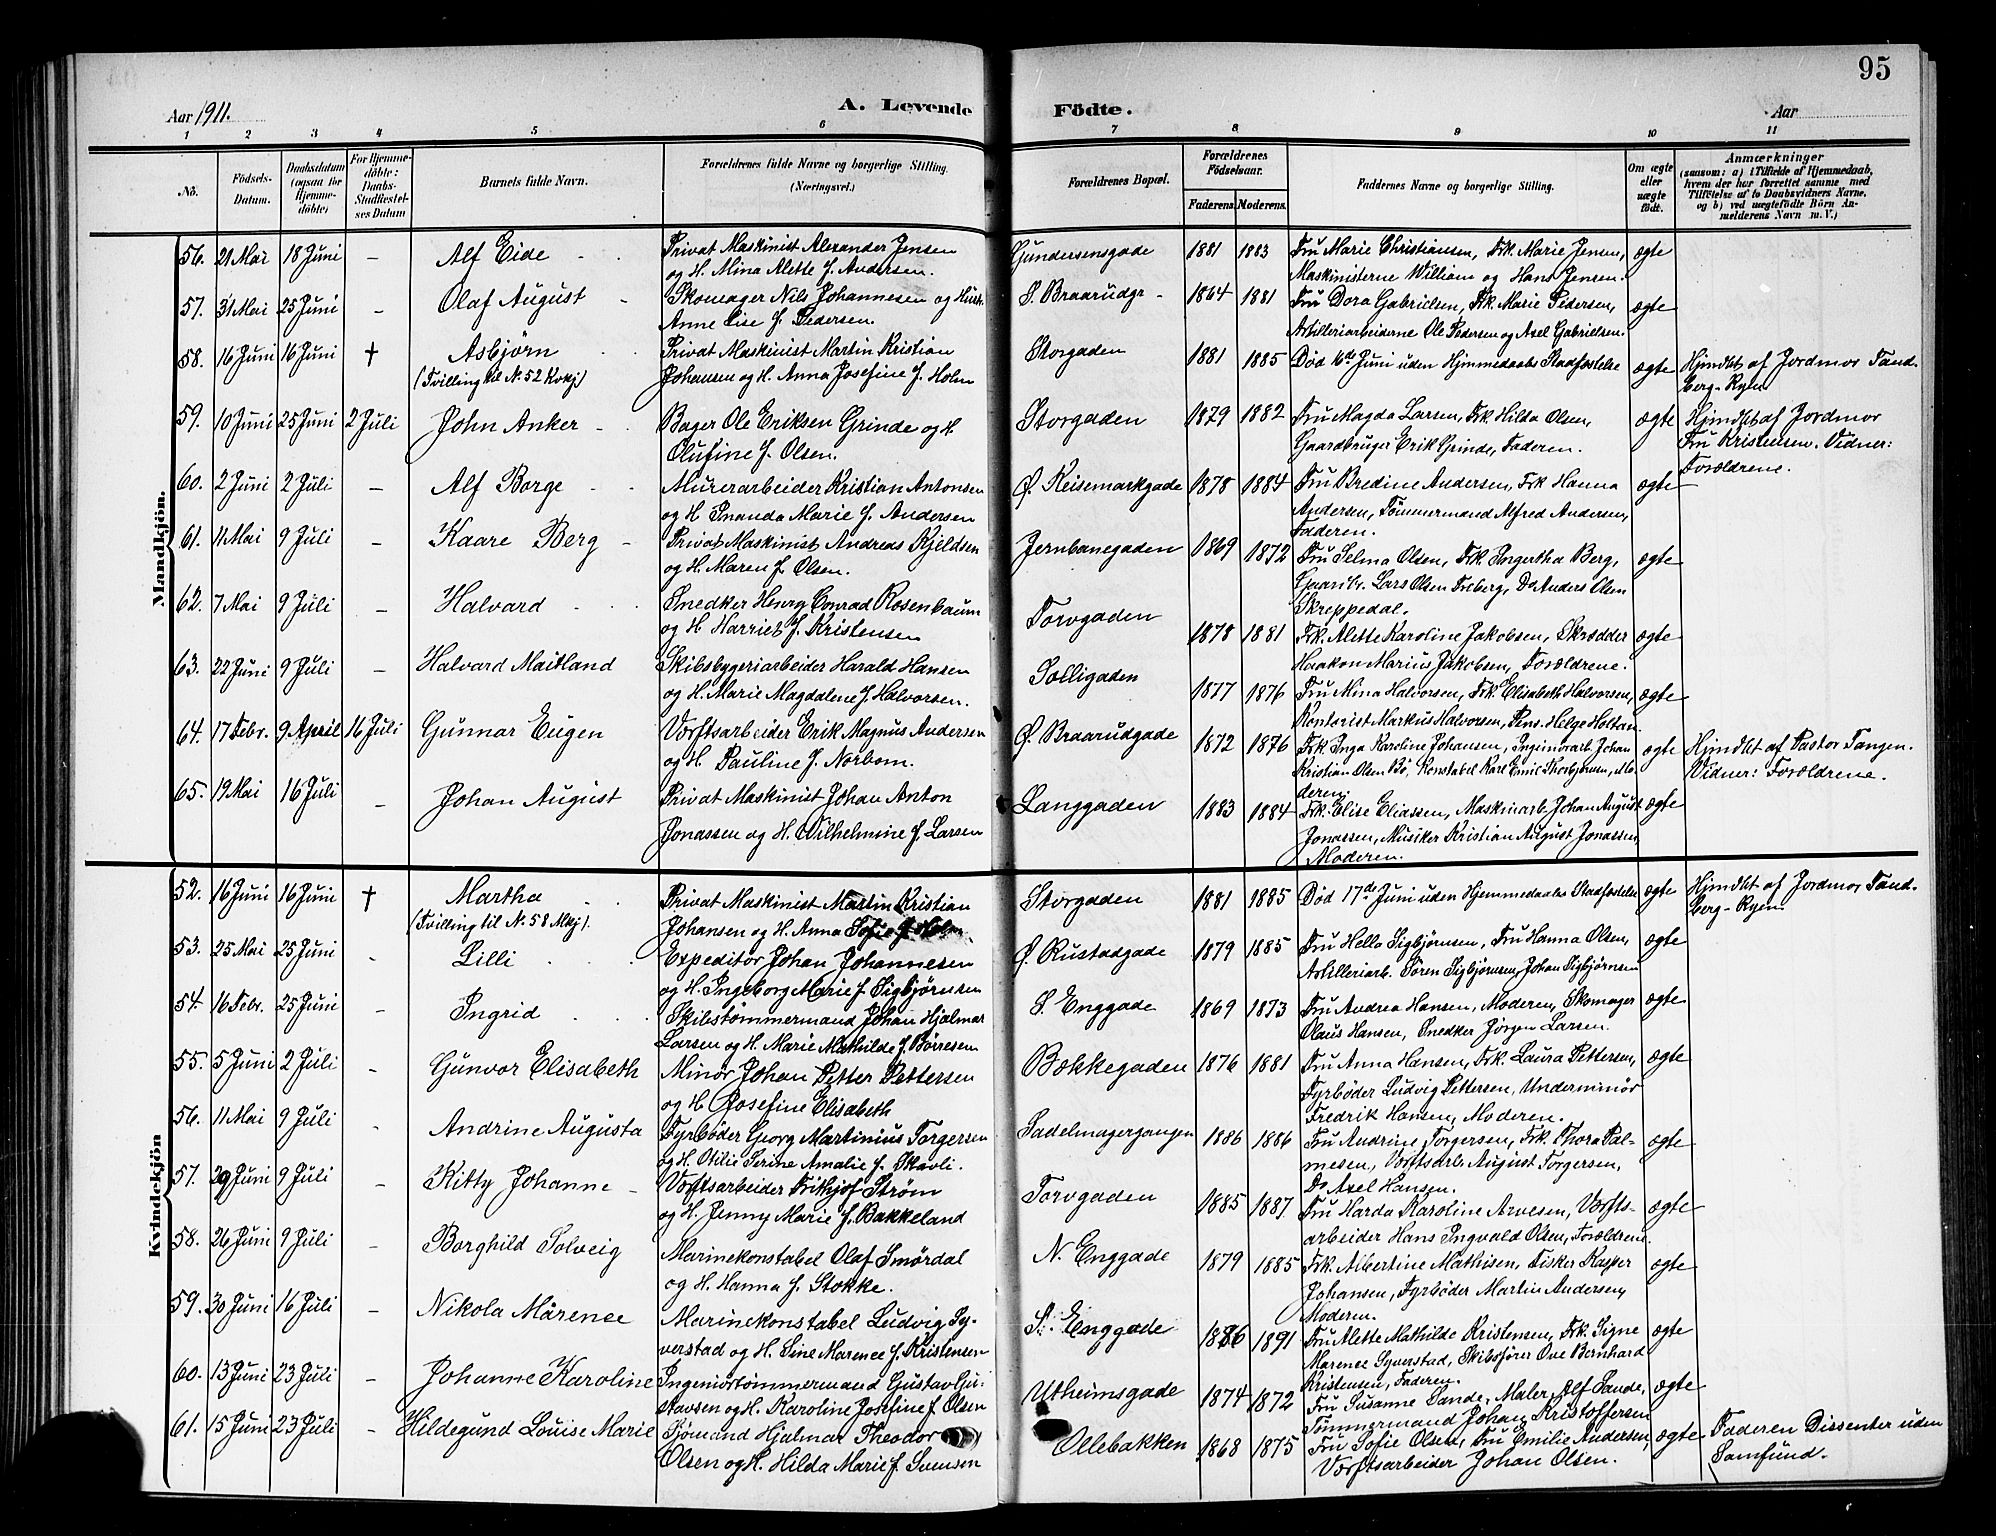 95
A. Levende Födte.
Aar 1911.
Aar
1 2 3 4 5 6 7 8 9 10 11
No. Födsels-Datum. Daabsdatum (ogsaa for Hjemme-döbte) For Hjemme-döbte: Daabs-Stadfæstel-ses Datum Barnets fulde Navn. Forældrenes fulde Navne og borgerlige Stilling. (Næringsvei.) Forældrenes Bopæl. Forældrenes Födselsaar. Faderens. Moderens. Faddernes Navne og borgerlige Stilling. Om ægte eller uægte födt. Anmærkninger (saasom: a) i Tilfælde af Hjemmedaab, hvem der har forrettet samme med Tilföielse af to Daabsvidners Navne, og b) ved uægtefödte Börn An-melderens Navn m. V.)
Mandkjön.
56. 21 Mai 18 Juni — Alf Eide Privat Maskinist Alexander Jensen Gundersensgade 1881 1883 Fru Marie Christiansen, Frk. Marie Jensen, ægte
og H. Mina Alette f. Andersen. Maskinisterne William og Hans Jensen.
57. 31 Mai 25 Juni — Olaf August Skomager Nils Johannesen og Hust. S. Braarudgr 1864 1881 Fru Dora Gabrielsen, Frk. Marie Pedersen, ægte
Anne Lise f. Pedersen. Artilleriarbeiderne Ole Pedersen og Axel Gabrielsen.
58. 16 Juni 16 Juni † Asbjörn Privat Maskinist Martin Kristian Storgaden 1881 1885 Död 16de Juni uden Hjemmedaabs Stadfæstelse ægte Hjmdbt af Jordmor Tand-
(Tvilling til No. 52 Kvkj) Johansen og H. Anna Josefine f. Holm berg-Ryen
59. 10 Juni 25 Juni 2 Juli John Anker Bager Ole Eriksen Grinde og H. Storgaden 1879 1882 Fru Magda Larsen, Frk. Hilda Olsen, ægte Hjmdbt af Jordmor
Olufine f. Olsen. Gaardbruger Erik Grinde, Faderen. Fru Kristensen. Vidner:
Forældrene.
60. 2 Juni 2 Juli — Alf Borge Murerarbeider Kristian Antonsen Ø. Keisemarkgade 1878 1884 Fru Bredine Andersen, Frk Hanna ægte —
og H. Inanda Marie f. Andersen Andersen, Tømmermand Alfred Andersen,
Faderen.
61. 11 Mai 9 Juli — Kaare Berg Privat Maskinist Andreas Kjeldsen Jernbanegaden 1869 1872 Fru Selma Olsen, Frk. Ingertha Berg, ægte
og H. Maren f. Olsen. Gaardbr. Lars Olsen Freberg, Do Anders Olsen
Skreppedal.
62. 7 Mai 9 Juli — Halvard Snedker Henry Conrad Rosenbaum Torvgaden 1878 1881 Frk. Alette Karoline Jakobsen, Skrædder ægte
og H. Harriet f. Kristensen Haakon Marius Jakobsen, Forældrene.
63. 22 Juni 9 Juli — Halvard Maitland Skibsbygeriarbeider Harald Hansen Solligaden 1877 1876 Fru Mina Halvorsen, Frk. Elisabeth Halvorsen, ægte
og H. Marie Magdalene f. Halvorsen. Kontorist Markus Halvorsen, Pens. Helge Holtan.
64. 17 Febr. 9 April 16 Juli Gunnar Eugen Værftsarbeider Erik Magnus Andersen Ø. Braarudgade 1872 1876 Frk. Inga Karoline Johansen, Ingeniörarb. Johan ægte Hjmdbt af Pastor Tangen.
og H. Pauline f. Norbom. Kristian Olsen Bö, Konstabel Karl Emil Thorbjørnsen, Mo- Vidner: Forældrene.
deren.
65. 19 Mai 16 Juli — Johan August Privat Maskinist Johan Anton Langgaden 1883 1884 Frk. Elise Eliassen, Maskinarb. Johan August ægte
Jonassen og H. Wilhelmine f. Larsen Jonassen, Musiker Kristian August Jonassen,
Moderen.
Kvindekjön
52. 16 Juni 16 Juni † Martha Privat Maskinist Martin Kristian Storgaden 1881 1885 Död 17de Juni uden Hjemmedaabs Stadfæstelse ægte Hjmdbt af Jordmor Tand-
(Tvilling til No. 58 Mkj). Johansen og H. Anna Sofie f. Holm berg-Ryen.
53. 25 Mai 25 Juni - Lilli Expeditör Johan Johannesen Ø. Rustadgade 1879 1885 Fru Hella Sigbjörnsen, Fru Hanna Olsen, ægte
og H. Ingeborg Marie f. Sigbjørnsen Artilleriarb. Sören Sigbjörnsen, Johan Sigbjørnsen
54. 16 Febr. 25 Juni - Ingrid Skibstömmermand Johan Hjalmar S. Enggade 1869 1873 Fru Andrea Hansen, Moderen, Skomager ægte
Larsen og H. Marie Mathilde f. Börresen Olaus Hansen, Snedker Jørgen Larsen.
55. 5 Juni 2 Juli - Gunvor Elisabeth Minör Johan Petter Pettersen Bækkegaden 1876 1881 Fru Anna Hansen, Frk. Laura Pettersen, ægte
og H. Josefine Elisabeth Fyrbøder Ludvig Pettersen, Underminör
Fredrik Hansen, Moderen.
56. 11 Mai 9 Juli - Andrine Augusta Fyrbøder Georg Martinius Torgersen Sadelmagergangen 1886 1886 Fru Andrine Torgersen, Frk. Thora Pal- ægte
og H. Otilie Serine Amalie f. Skavli. mesen, Værftsarb. August Torgersen,
Do Axel Hansen.
57. 29 Juni 9 Juli - Kitty Johanne Værftsarbeider Frithjof Ström Torvgaden 1885 1887 Fru Harda Karoline Arvesen, Værfts- ægte
og H. Jenny Marie f. Bakkeland arbeider Hans Ingvald Olsen, Forældrene.
58. 26 Juni 9 Juli - Borghild Solveig Marinekonstabel Olaf Smördal N. Enggade 1879 1885 Frk. Albertine Mathisen, Fisker Kasper ægte
og H. Hanna f. Stokke. Johansen, Fyrbøder Martin Andersen,
Moderen.
59. 30 Juni 16 Juli - Nikola Mårence Marinekonstabel Ludvig Sy- S. Enggade 1886 1891 Fru Alette Mathilde Kristensen, Frk. Signe ægte
verstad og H. Sine Marence f. Kristensen Marence Syverstad, Skibsfører Ove Bernhard
Kristensen, Faderen.
60. 13 Juni 23 Juli - Johanne Karoline Ingeniörtömmermand Gustav Gu- Utheimsgade 1874 1872 Fru Susanne Sande, Maler Alf Sande, ægte
stavsen og H. Karoline Josefine f. Olsen Tömmermand Johan Kristoffersen
61. 15 Juni 23 Juli - Hildegund Louise Marie Sjömand Hjalmar Theodor Ollebakken 1868 1875 Fru Sofie Olsen, Fru Emilie Andersen, ægte Faderen Dissenter uden
Olsen og H. Hilda Marie f. Svensen Værftsarbeider Johan Olsen. Samfund.